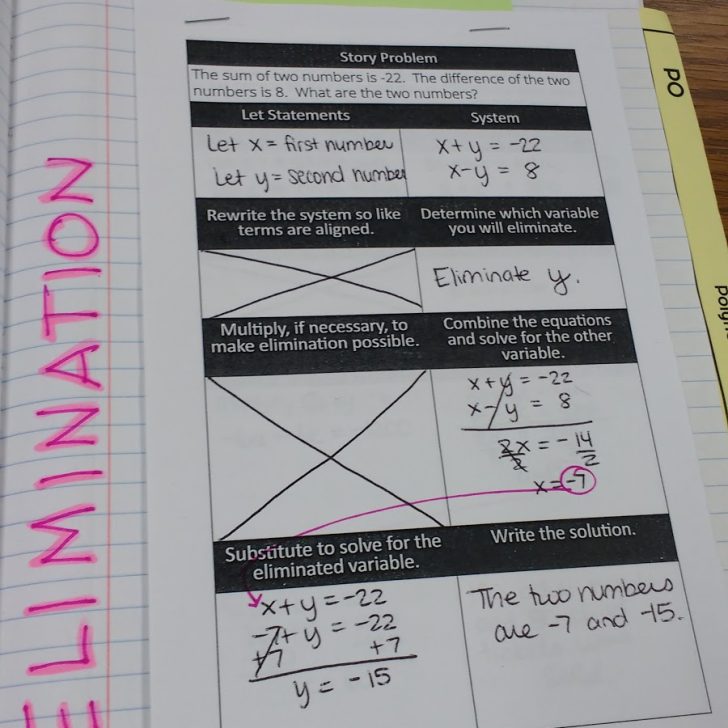 ELIMINATION
PO
Story Problem
The sum of two numbers is -22. The difference of the two
numbers is 8. What are the two numbers?
Let Statements
System
Let x = first number
Let y = second number
x+y = -22
x-y = 8
Rewrite the system so like
terms are aligned.
Determine which variable
you will eliminate.
Eliminate y.
Multiply, if necessary, to
make elimination possible.
Combine the equations
and solve for the other
variable.
x+y = -22
x-y = 8
2x = -14
2 2
x = -7
Substitute to solve for the
eliminated variable.
x+y = -22
-7+y = -22
+7 +7
y = -15
Write the solution.
The two numbers
are -7 and -15.